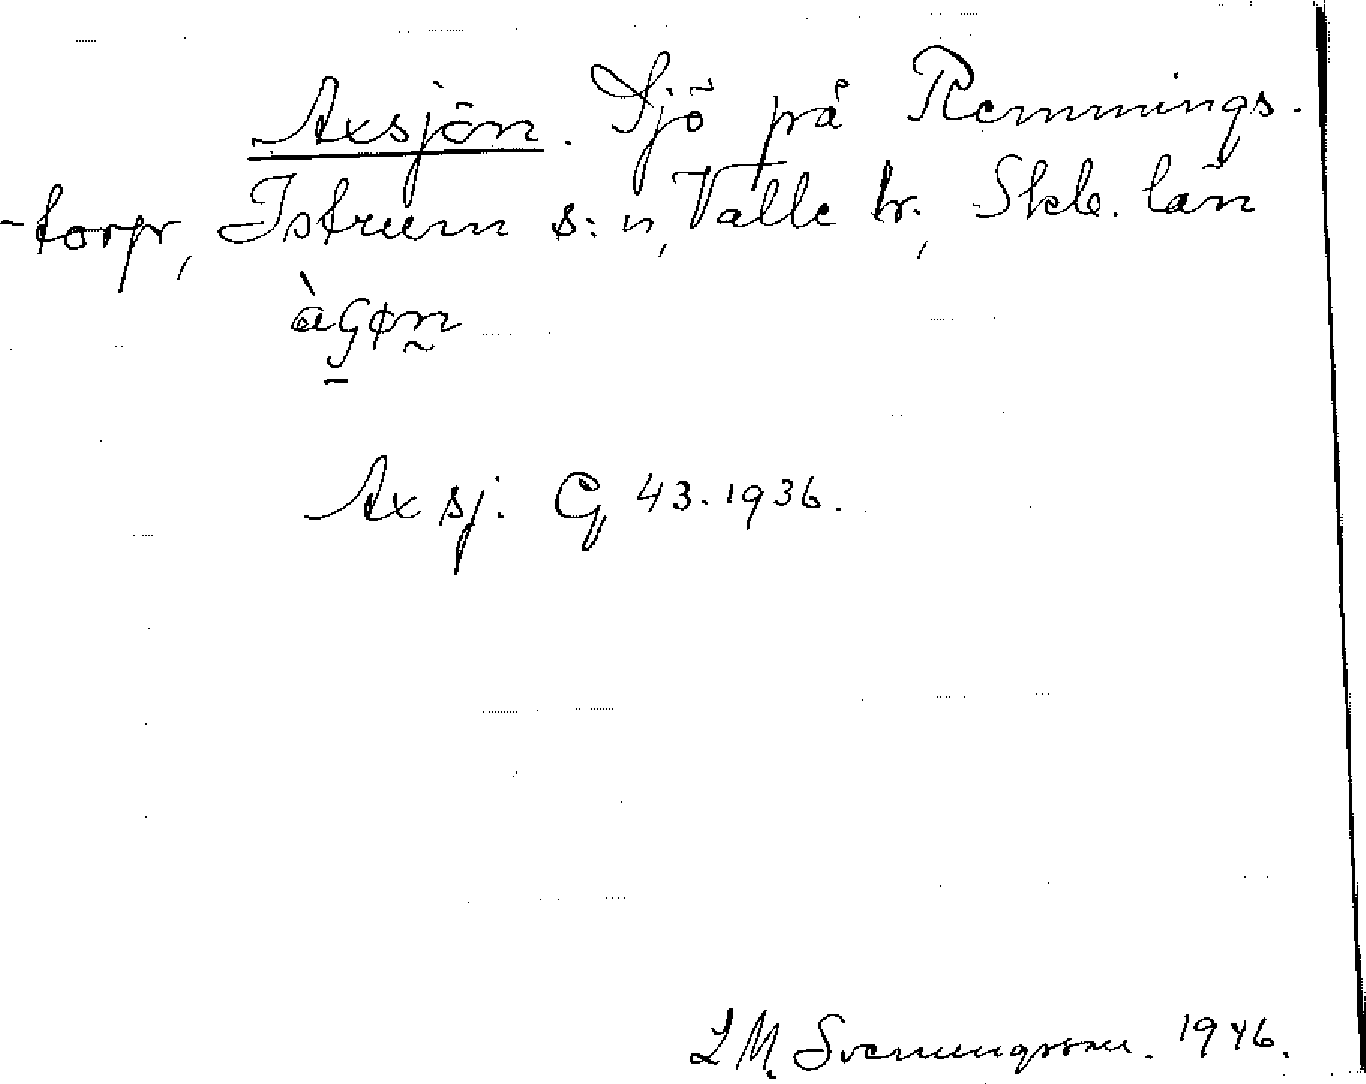 Axsjön. Sjö på Remmings-
-torp, Istrum s:n, Valle hr., Skb. län
Axsj. G 43. 1936.
L M. Svenungsson. 1946.